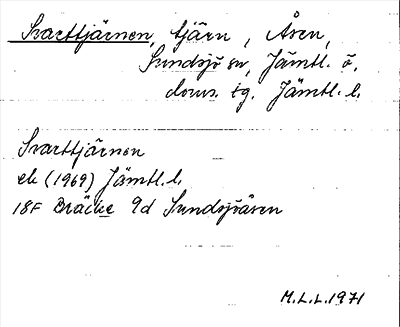 Svarttjärnen, tjärn, Åsen,
Sundsjö sn, Jämtl. ö.
doms. tg. Jämtl. l.
Svarttjärnen
ek (1969) Jämtl. l.
18F Bräcke 9d Sundsjöåsen
M.L.L. 1971